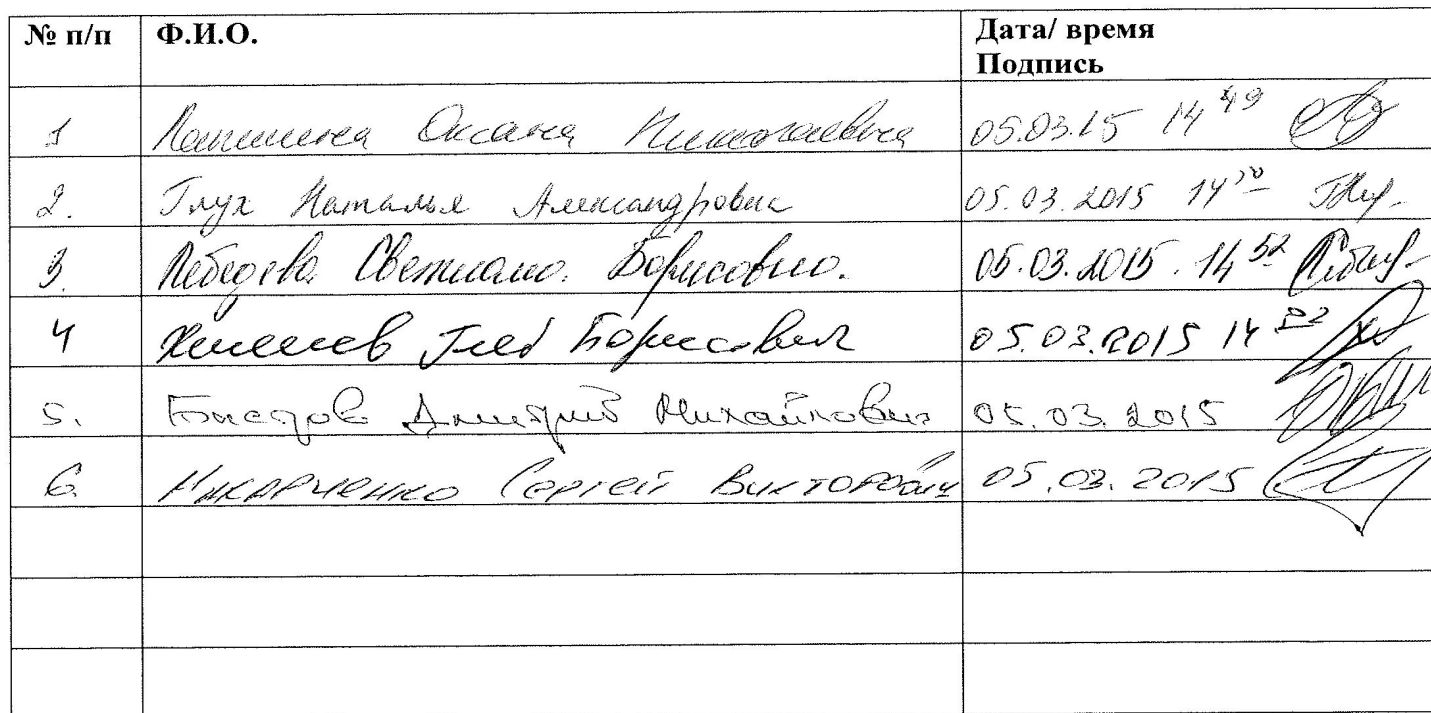 № п/п Ф.И.О. Дата/ время
Подпись
1 Оксана Николаевна 05.03.15 14 49
2. Глух Наталья Александровна 05.03.2015 14
3. Лебедева Светлана Борисовна. 05.03.2015. 14 52
4 Глеб Борисович 05.03.2015 14
5. Быстров Дмитрий Михайлович 05.03.2015
6. Сергей Викторович 05.03.2015